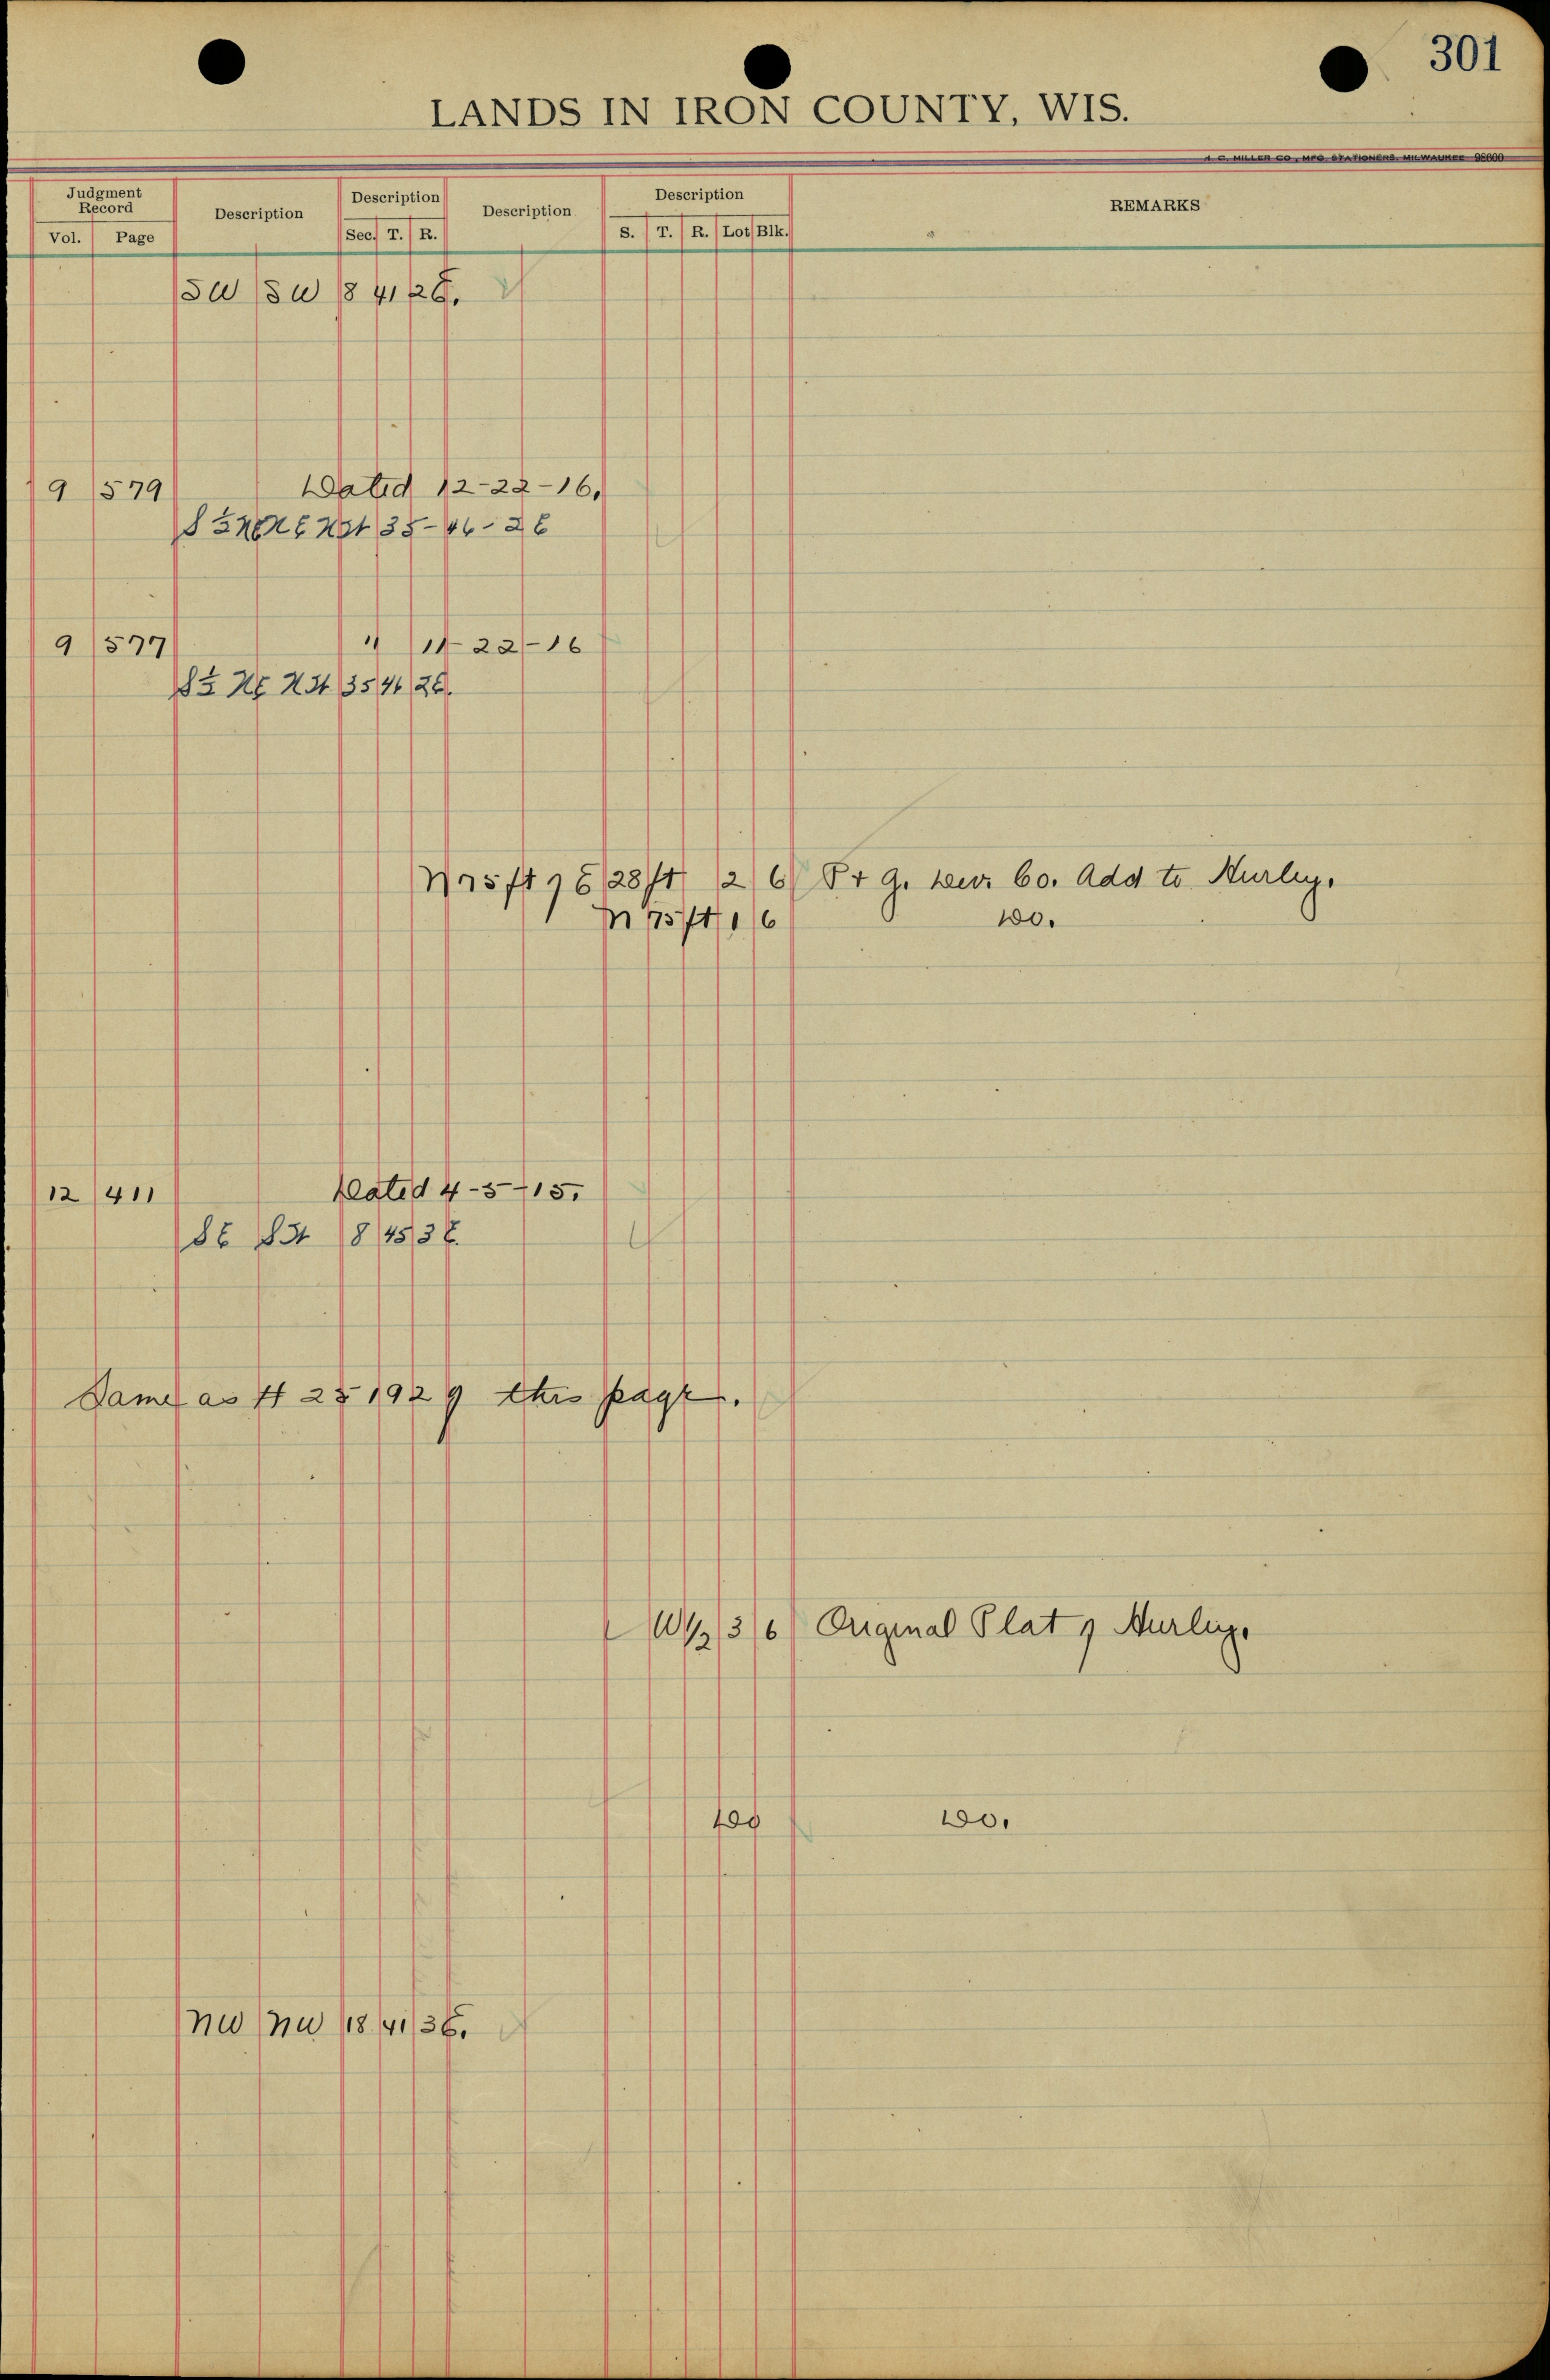 301
LANDS IN IRON COUNTY, WIS.
H. C. MILLER CO., MFG. STATIONERS, MILWAUKEE 98600
Judgment Record Description Description Description Description REMARKS
Vol. Page Sec. T. R. S. T. R. Lot Blk.
SW SW 8 41 2E.
9 579 Dated 12-22-16.
S½ NE NW 35-46-2E
9 577 " 11-22-16
S½ NE NW 35 46 2E.
N75ft of E 28ft 2 6 P & G. Dev. Co. Add to Hurley.
N 75ft 1 6 DO.
12 411 Dated 4-5-15.
SE SW 8 45 3E.
Same as # 251929 this page.
W½ 3 6 Original Plat of Hurley.
DO DO.
NW NW 18 41 3E.